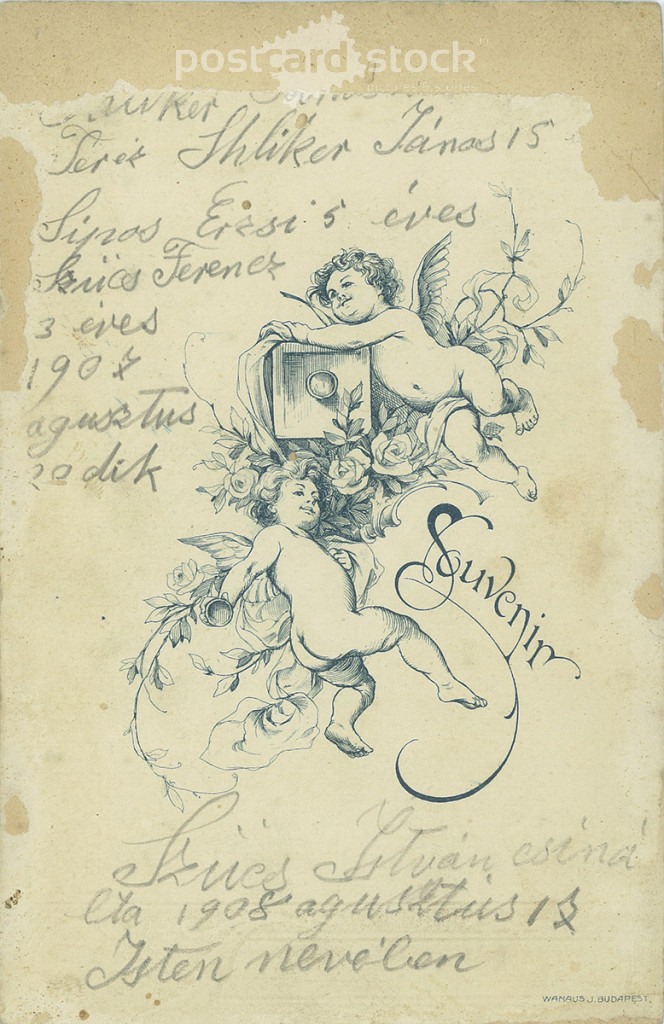 postcard stock
pictures & stories
Teréz Shliker János 15
Sipos Erzsi 5 éves
Szücs Ferencz
3 éves
1907
agusztus
20 dik
Souvenir
Szücs István csiná
lta 1908 agusztus 13
Isten nevében
WANAUS J. BUDAPEST.